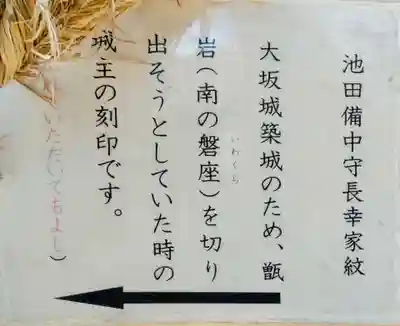 池田備中守長幸家紋
大坂城築城のため、甑
岩(南の磐座)を切り
いわくら
出そうとしていた時の
城主の刻印です。
いただいてもよし)